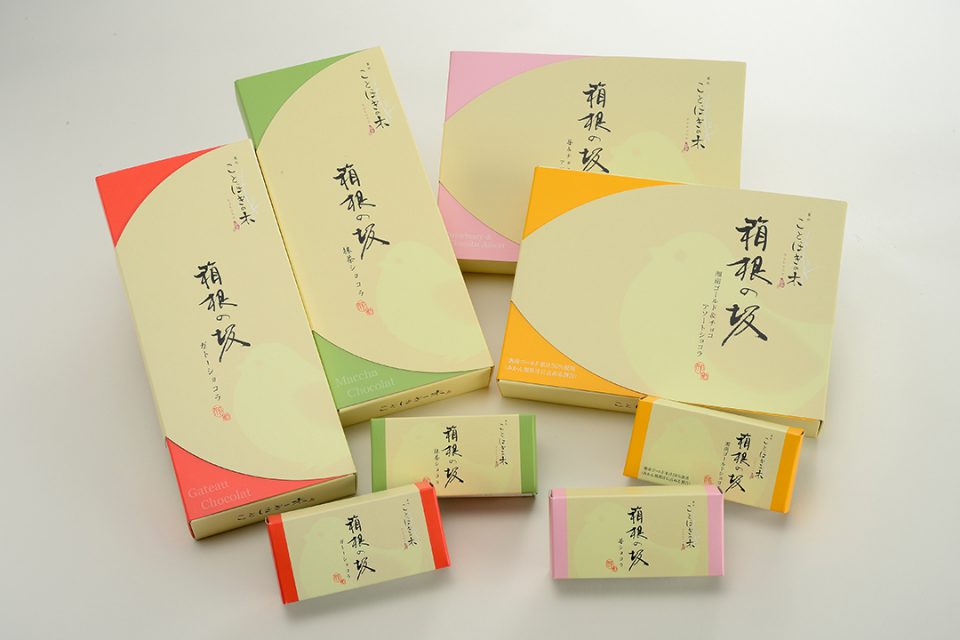 ことほぎの木
箱根の坂
ガトーショコラ
Gateau
Chocolat
ことほぎの木
箱根の坂
抹茶ショコラ
Maccha
Chocolat
ことほぎの木
ことほぎの木
箱根の坂
苺&チョコ
Strawberry &
Chocolat Assort
ことほぎの木
箱根の坂
湘南ゴールド&チョコ
アソートショコラ
湘南ゴールド果汁50%使用
(みかん類果汁に占める割合)
ことほぎの木
箱根の坂
抹茶ショコラ
ことほぎの木
箱根の坂
湘南ゴールドショコラ
ことほぎの木
箱根の坂
ガトーショコラ
ことほぎの木
箱根の坂
苺ショコラ